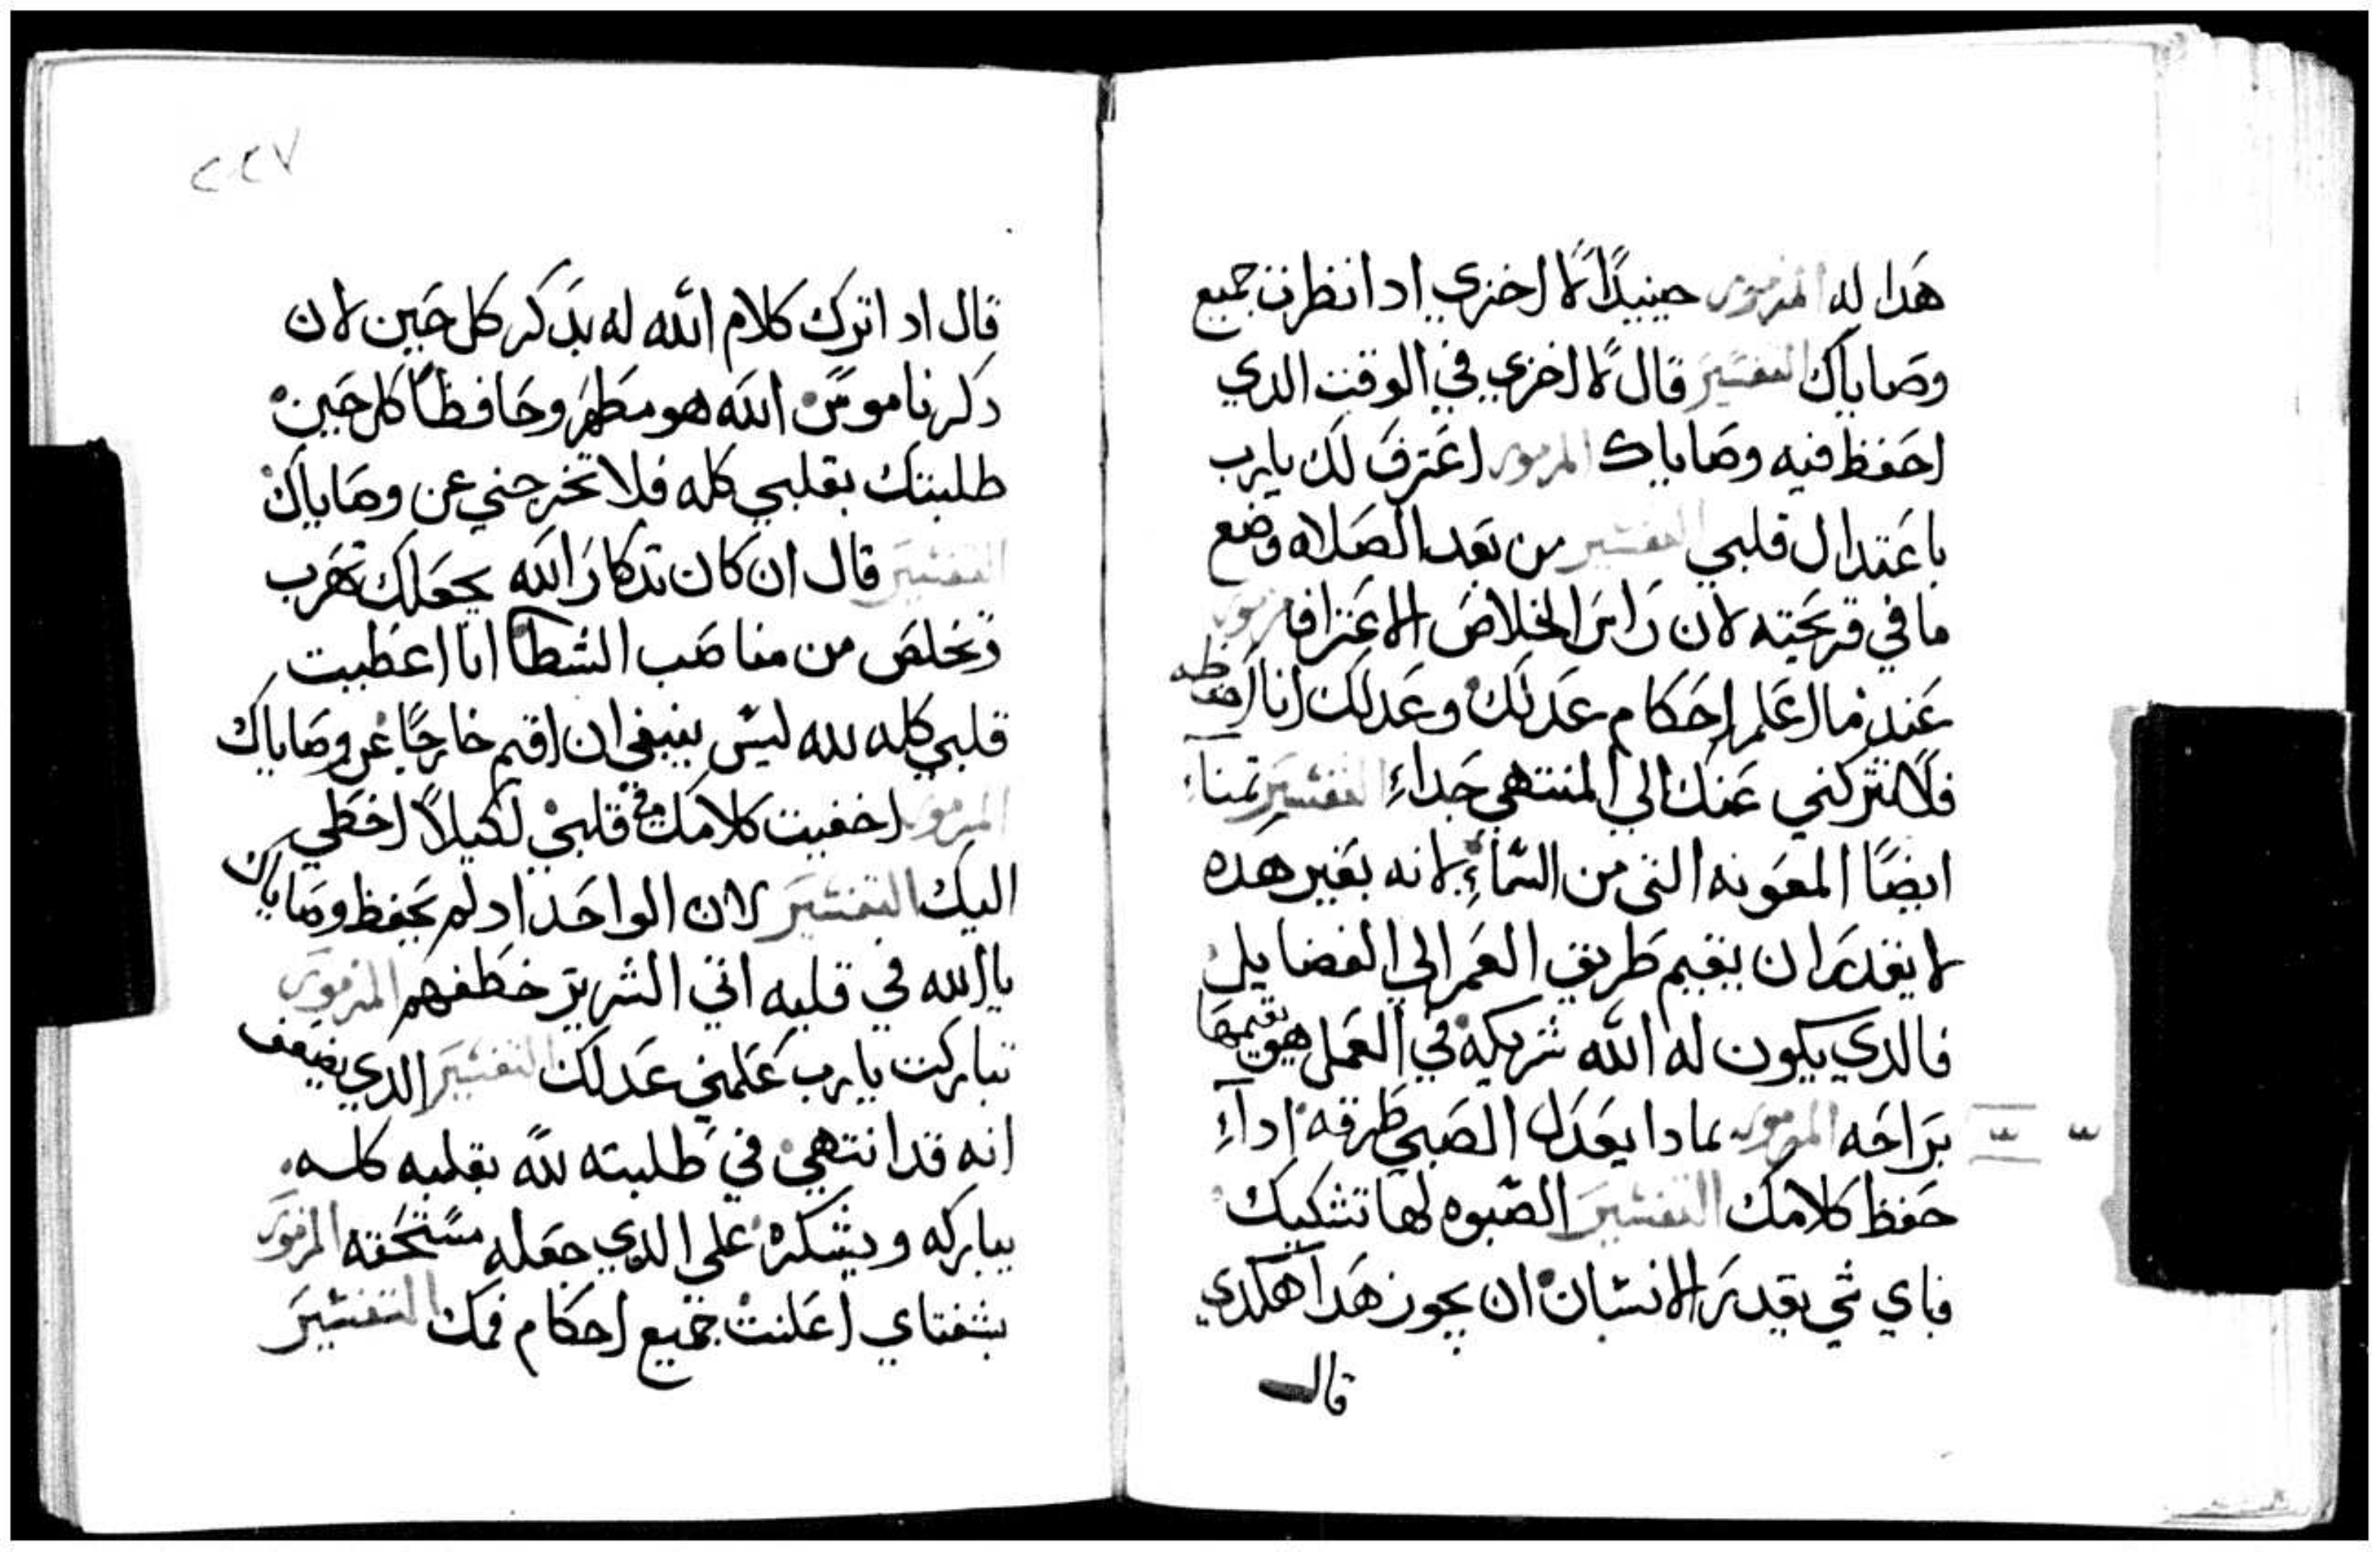 هدا له المزمور حينيدًا لا اخزي ادا نظرت جميع
وصاياك التفسير قال لا اخزي في الوقت الدي
احفظ فيه وصاياك المزمور اعترف لك يارب
باعتدال قلبي التفسير من بعد الصلاه وضع
ما في قريحته لان راس الخلاص الاعتراف مزمور
عند ما اعلم احكام عدلك وعدلك انا احفظه
فلا تتركني عنك الي المنتهي جداءِ التفسير تمناءِ
ايضًا المعونه التي من السماءِ لانه بغير هده
لا يقدر ان يقيم طريق العمر الي الفضايل
فالدي يكون له الله شريكه في العمل هو يقيمها
براحه المزمور بمادا يعدل الصبي طرقه اداءِ
حفظ كلامك التفسير الصبوه لها تشكيك
فباي شي يقدر الانسان ان يجوز هدا هكدي
قال
٢٢٧
قال اد اترك كلام الله له بدكر كل حين لان
دكر ناموس الله هو مطهر وحافظًا كل حين
طلبتك بقلبي كله فلا تخرجني عن وصاياك
التفسير قال ان كان تدكار الله يجعلك تهرب
وتخلص من مناصب الشطا انا اعطيت
قلبي كله لله ليس ينبغي ان اقيم خارجًا عن وصاياك
المزمور اخفيت كلامك في قلبي لكيلا اخطي
اليك التفسير لان الواحد اد لم يحفظ وصاياك
يا الله في قلبه اتي الشرير خطفهم المزمور
تباركت يارب علمني عدلك التفسير الدي يضعف
انه قد انتهي في طلبته لله بقلبه كله
يباركه ويشكره علي الدي جعله مستحقه المزمور
بشفتاي اعلنت جميع احكام فمك التفسير